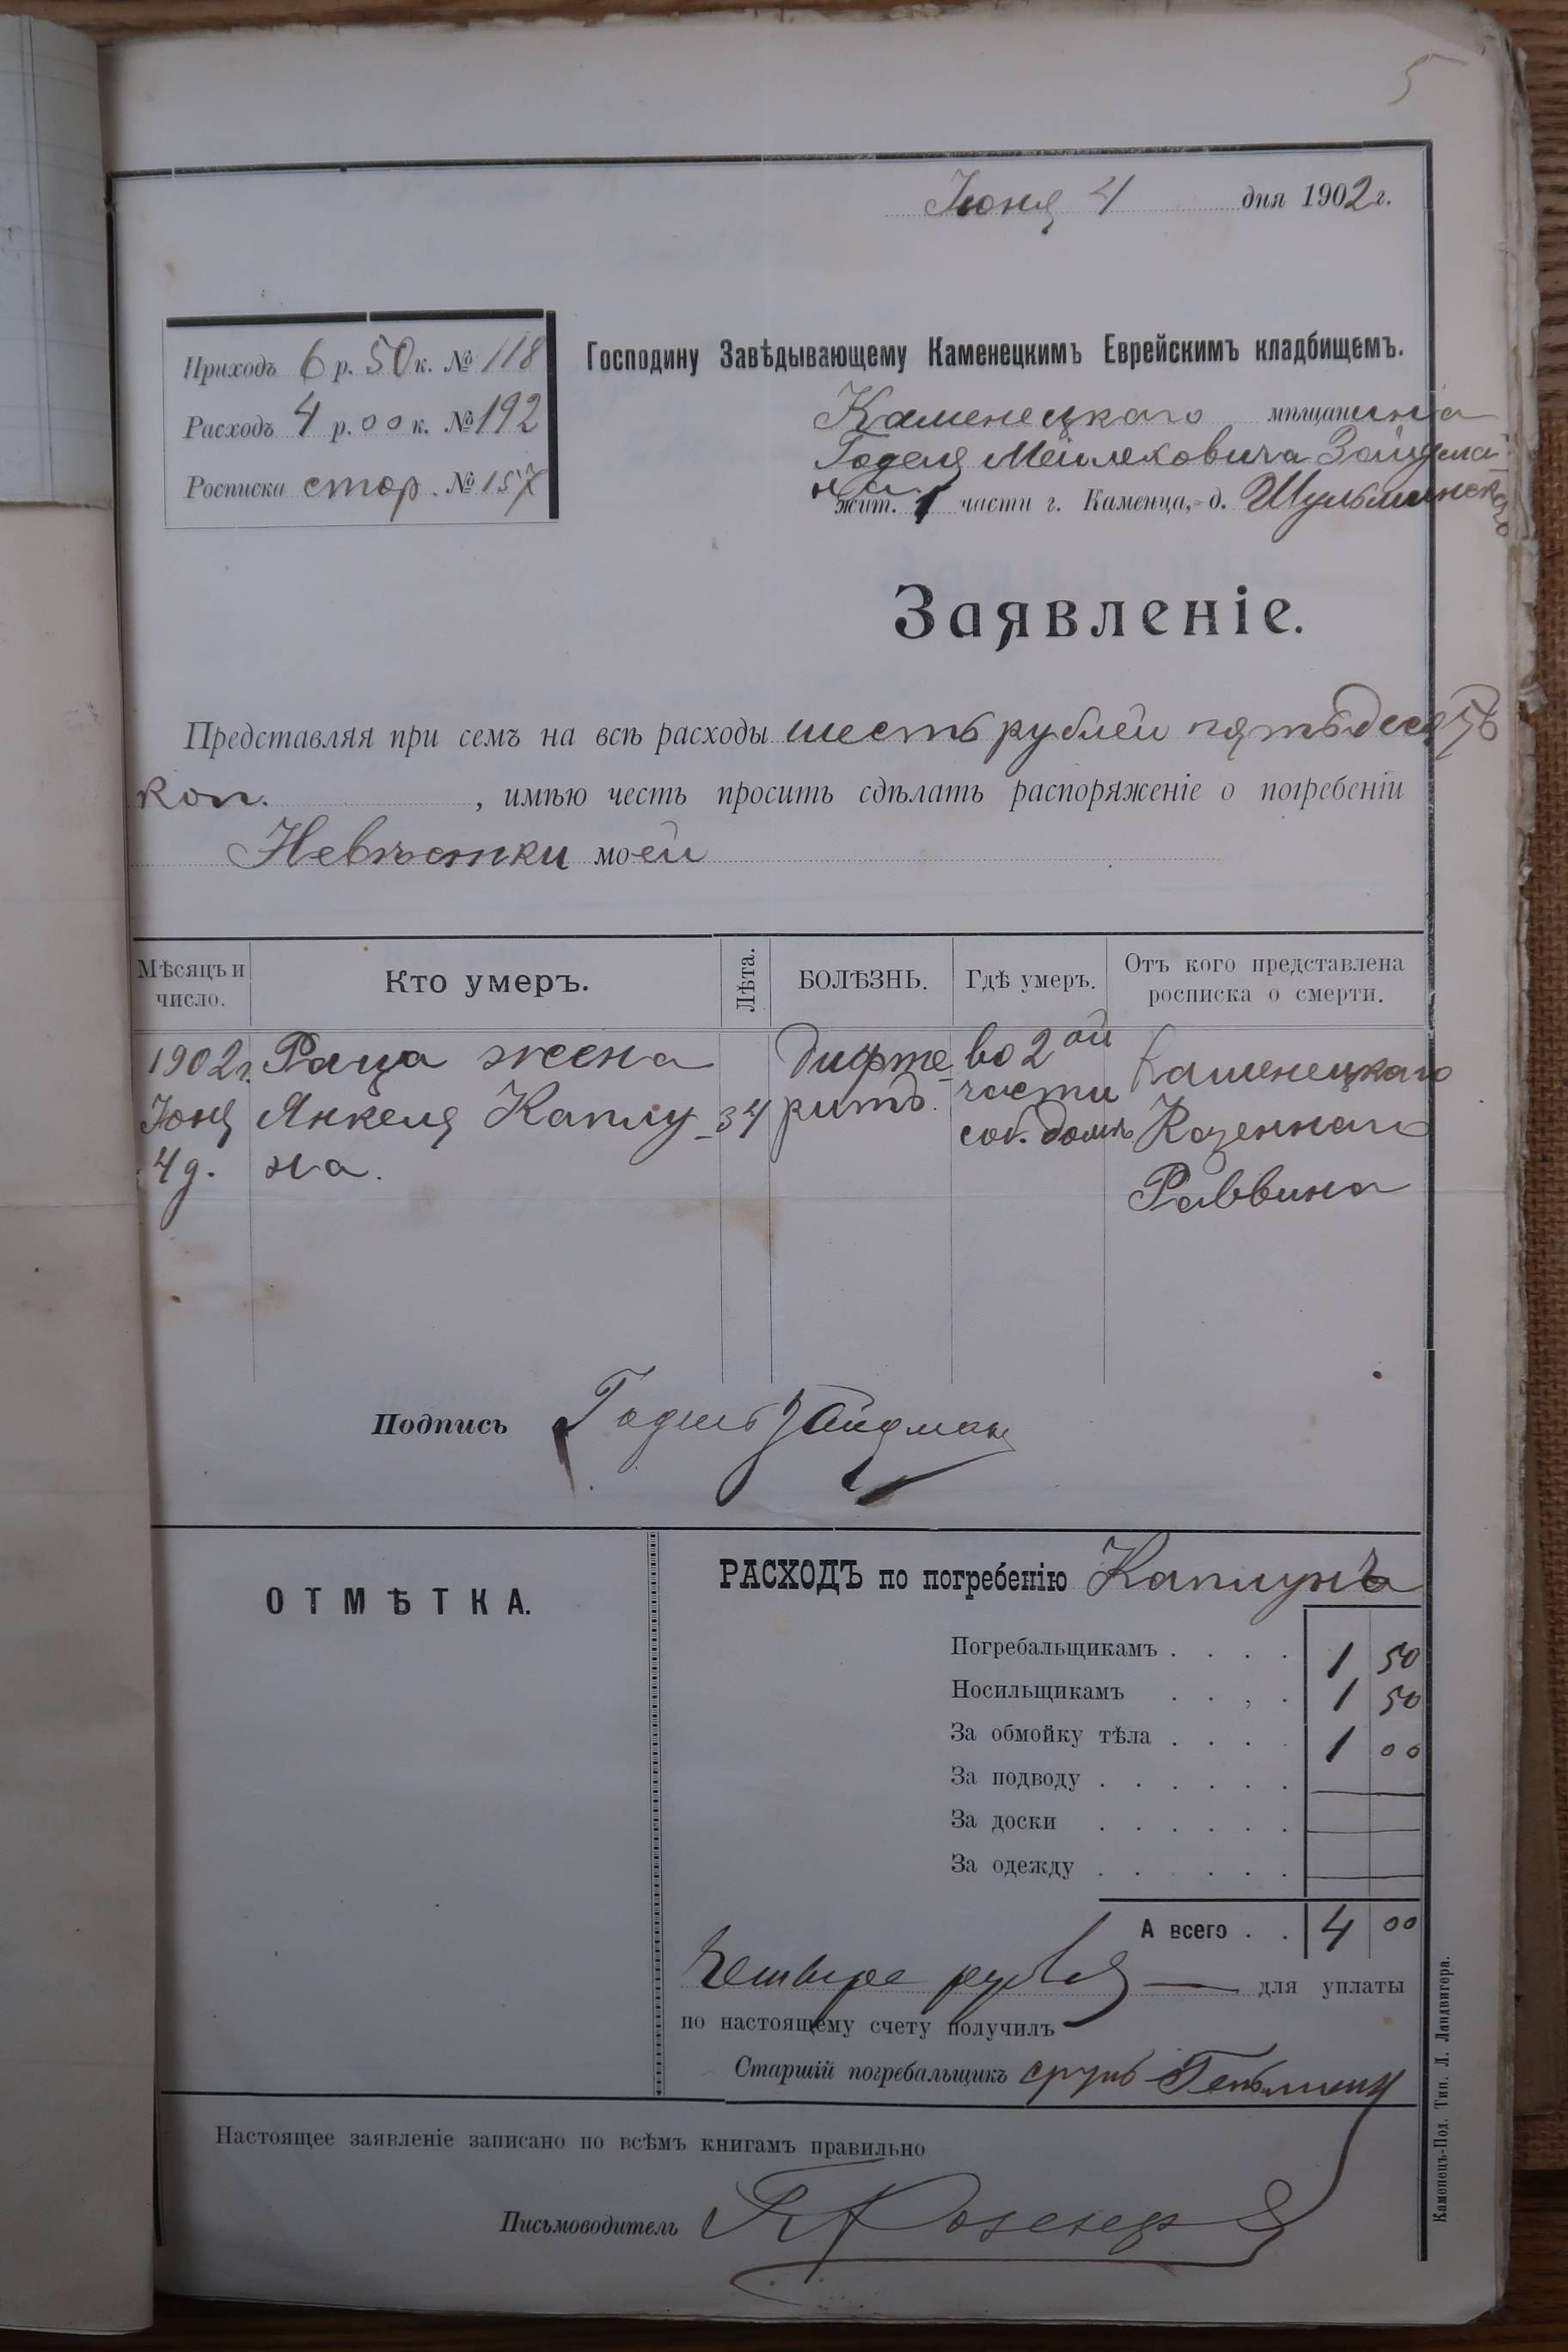 5
Іюня 4 дня 1902 г.
Приходъ 6 р. 50 к. № 118
Расходъ 4 р. 00 к. № 192
Росписка стор. № 157
Господину Завѣдывающему Каменецкимъ Еврейскимъ кладбищемъ.
Каменецкаго мѣщанина
Годеля Мейлеховича Зайдма-
на
жит. 1 части г. Каменца, д. Шульминскаго
Заявленіе.
Представляя при семъ на всѣ расходы шесть рублей пятьдесятъ
коп. , имѣю честь просить сдѣлать распоряженіе о погребеніи
Невѣстки моей
Мѣсяцъ и число. Кто умеръ. Лѣта. БОЛѢЗНЬ. Гдѣ умеръ. Отъ кого представлена росписка о смерти.
1902 г. Раца жена дифте- во 2ой Каменецкаго
Іюня Янкеля Каплу- 34 ритъ. части Казеннаго
4 д. на. соб. домѣ Раввина
Подпись Годель Зайдман
ОТМѢТКА.
РАСХОДЪ по погребенію Каплунъ
Погребальщикамъ . . . . 1 50
Носильщикамъ . . , . 1 50
За обмойку тѣла . . . . 1 00
За подводу . . . . . .
За доски . . . . . .
За одежду . . . . . .
А всего . . 4 00
Четыре рубля — для уплаты
по настоящему счету получилъ
Старшій погребальщикъ
Настоящее заявленіе записано по всѣмъ книгамъ правильно
Письмоводитель
Каменецъ-Под. Тип. Л. Ландвигера.